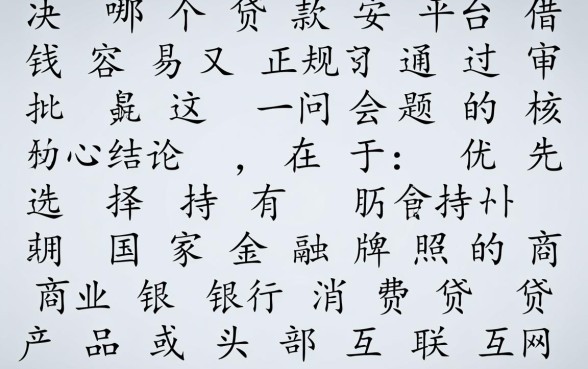 决 哪 个 贷 款 安 平台 借
钱 容 易 又 正规 通 过 审
批 这 一问 会 题 的 核
心结论 ，在 于： 优 先
选 择 持 有 食持
国 家 金 融 牌 照 的 商
商业 银 银行 消 费 贷 贷
产 品 或 头 部 互 联 互网